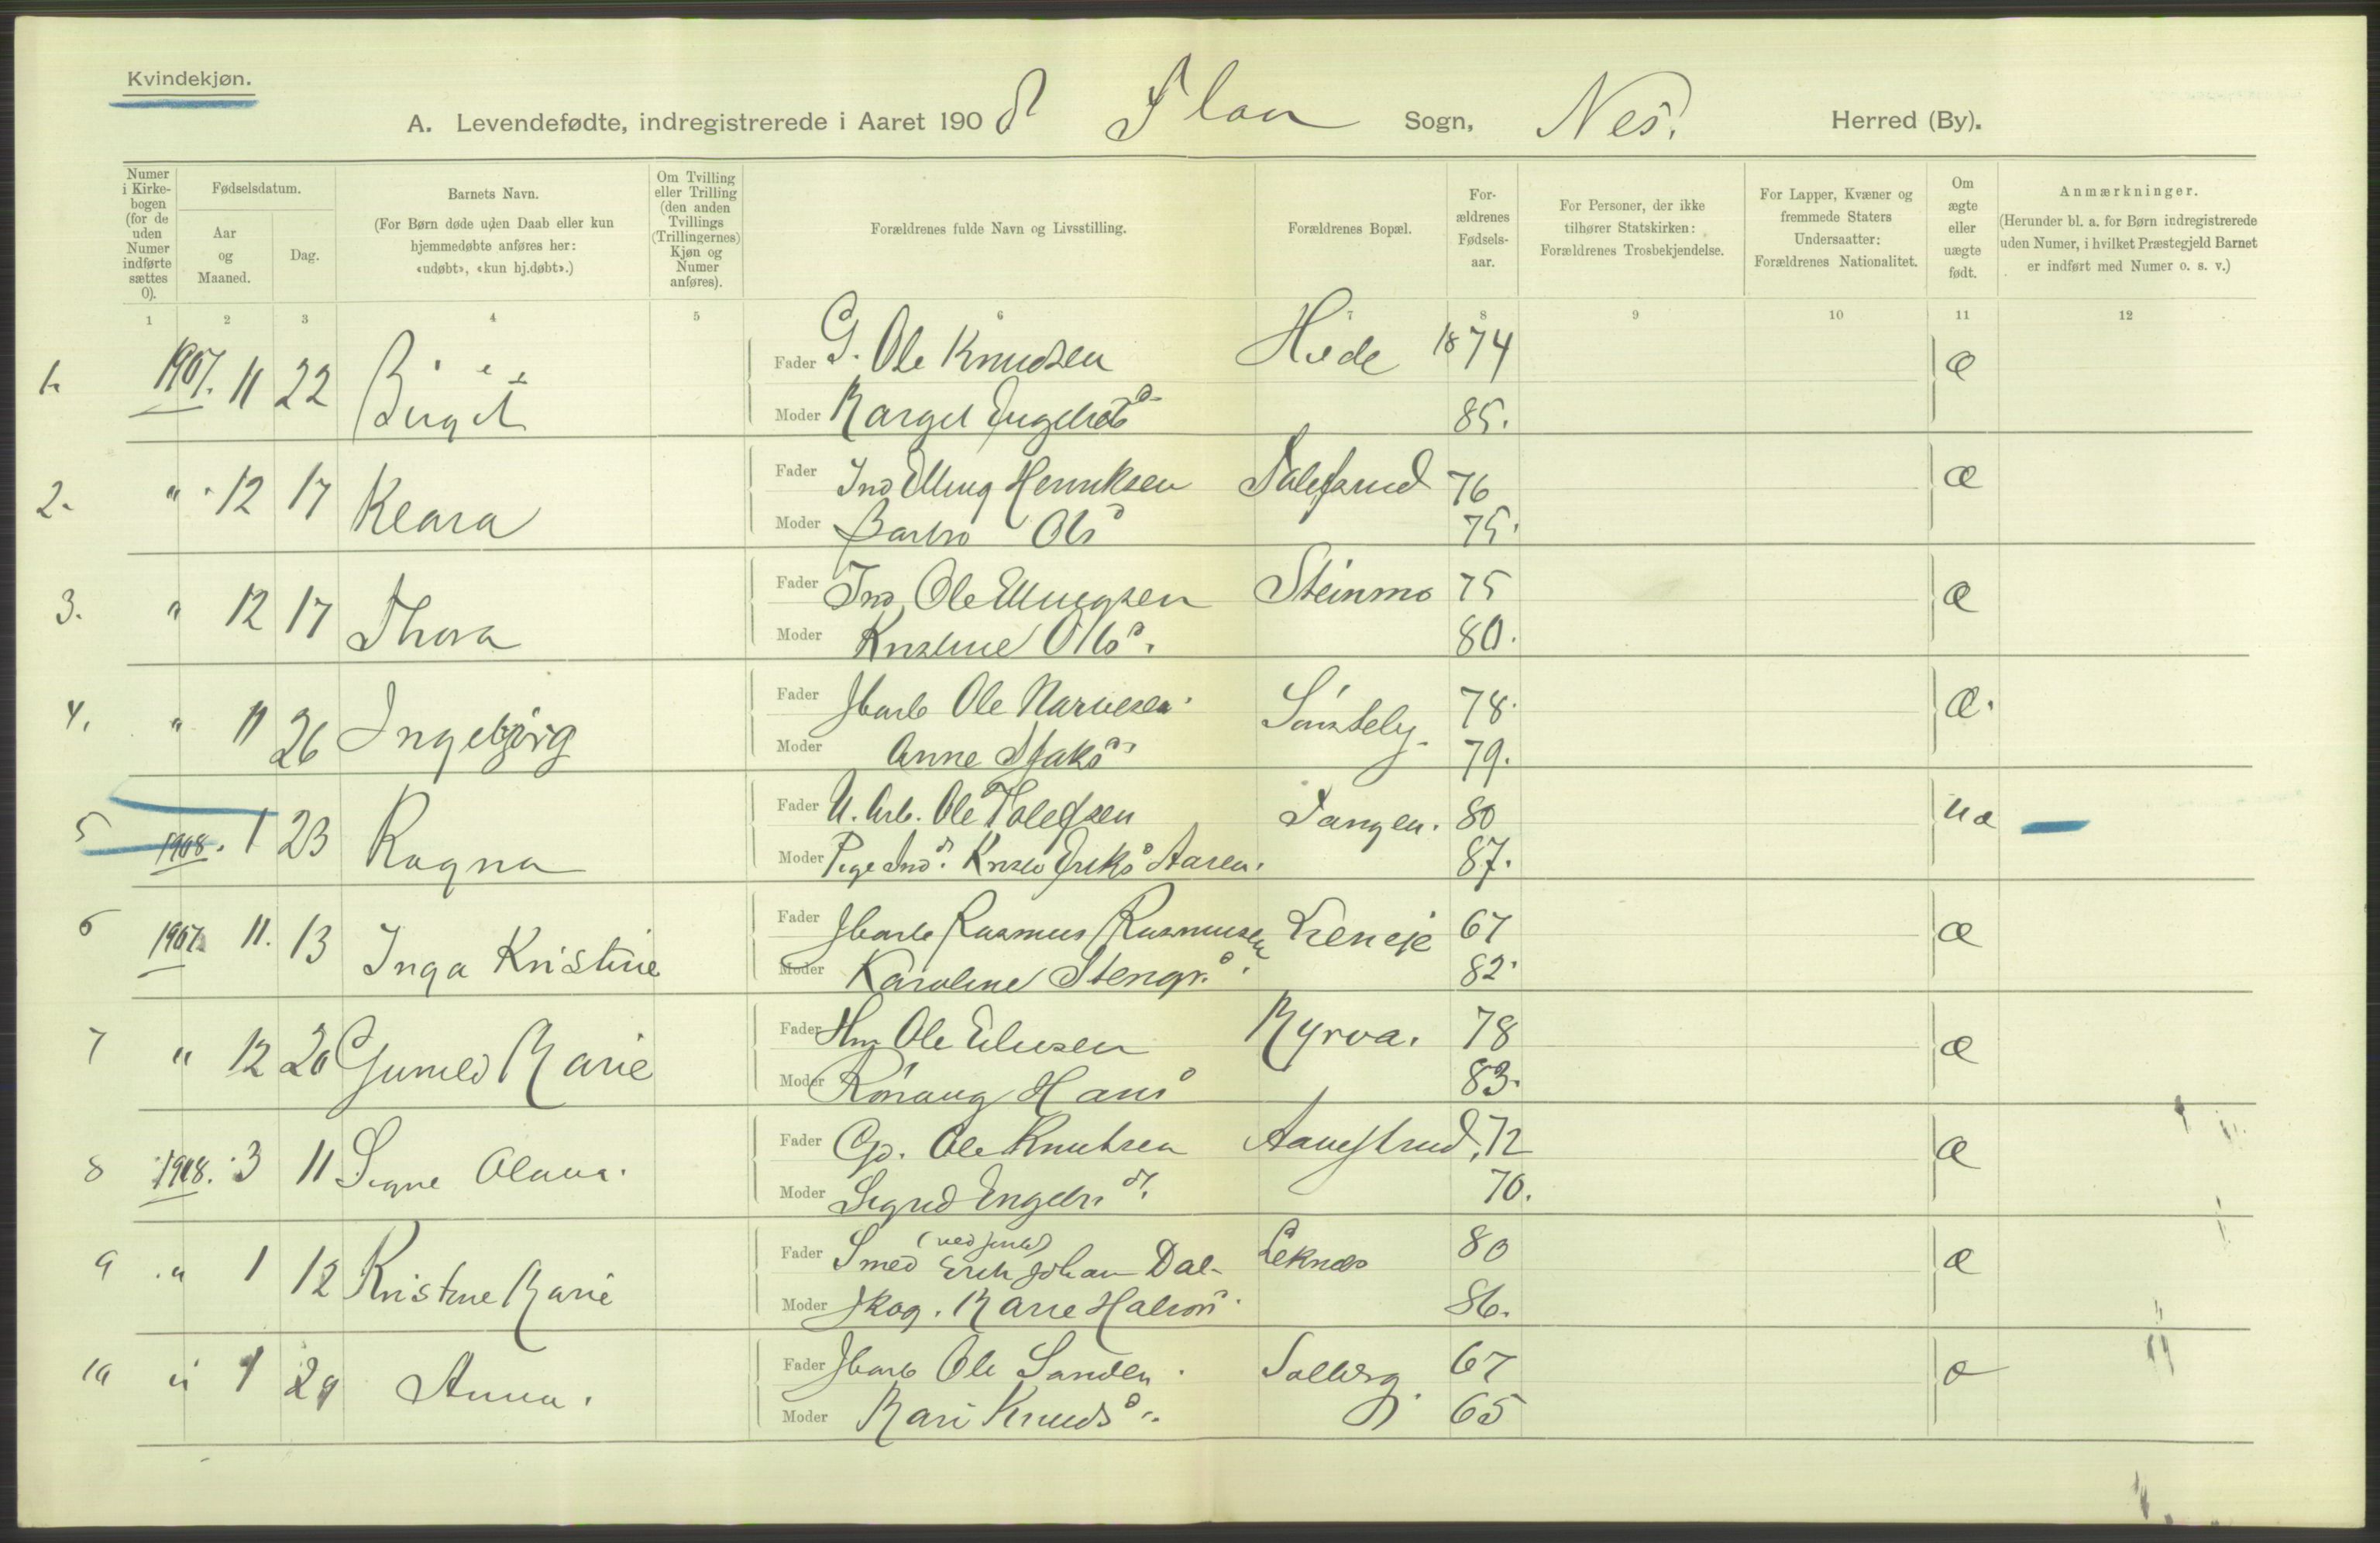 Kvindekjøn.
A. Levendefødte, indregistrerede i Aaret 1908 Flaa Sogn, Nes. Herred (By).
Numer i Kirkebogen (for de uden Numer indførte sættes 0).
Fødselsdatum.
Aar og Maaned.
Dag.
Barnets Navn.
(For Børn døde uden Daab eller kun hjemmedøbte anføres her: «udøbt», «kun hj.døbt».)
Om Tvilling eller Trilling (den anden Tvillings (Trillingernes) Kjøn og Numer anføres).
Forældrenes fulde Navn og Livsstilling.
Forældrenes Bopæl.
Forældrenes Fødselsaar.
For Personer, der ikke tilhører Statskirken: Forældrenes Trosbekjendelse.
For Lapper, Kvæner og fremmede Staters Undersaatter: Forældrenes Nationalitet.
Om ægte eller uægte født.
Anmærkninger.
(Herunder bl. a. for Børn indregistrerede uden Numer, i hvilket Præstegjeld Barnet er indført med Numer o. s. v.)
1 2 3 4 5 6 7 8 9 10 11 12
1. 1907. 11 22 Birgit Fader G. Ole Knudsen Hilde 1874 æ
Moder Margit Engebretsd 85.
2. " 12 17 Klara Fader Ind Elling Henriksen 76 æ
Moder Barbro Olsd 75.
3. " 12 17 Thora Fader Ind. Ole Ellingsen Steinmo 75 æ
Moder Kristine Olsd. 80.
4. " 11 26 Ingebjørg Fader Jbarb Ole Narvesen 78. æ.
Moder Anne 79.
5 1908. 1 23 Ragna Fader U. Arb. Ole Tolefsen Tangen. 80 uæ
Moder Pige Ind. Aasen. 87.
6 1907. 11. 13 Inga Kristine Fader Jbarb Rasmus Rasmussen 67 æ
Moder Karoline 82.
7 " 12 20 Gunild Marie Fader Ole Myrva. 78 æ
Moder Rønaug Hansd 83.
8 1908. 3 11 Signe Olava. Fader Gp. Ole Knutsen 72 æ
Moder Sigrid 70.
9 " 1 12 Kristine Marie Fader Smed Erik Johan Dal- 80 æ
Moder skog. Marie 86.
10 " 1 29 Anna. Fader Jbarb Ole Sanden Solberg. 67 æ
Moder Kari Knudsd. 65